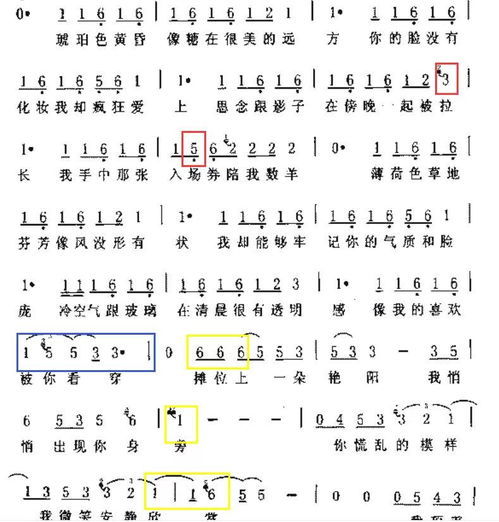 0· 1 1 6 1 6 1 6 1 6 1 2 1 1· 1 6 1 6
琥珀色黄昏 像糖在很美的远 方 你的脸没有
1 6 1 6 5 6 1 1· 1 6 1 6 1 6 1 6 1 2 3
化妆我却疯狂爱 上 思念跟影子 在傍晚一起被拉
1· 1 1 6 1 6 1 5 6 2 2 2 2 0· 1 1 6 1 6
长 我手中那张 入场券陪我数羊 薄荷色草地
1 6 1 6 1 2 1 1· 1 1 6 1 6 1 6 1 6 5 6 1
芬芳像风没形有 状 我却能够牢 记你的气质和脸
1· 1 1 1 6 1 6 1 6 1 6 1 2 3 1· 1 6 1 6
庞 冷空气跟玻璃 在清晨很有透明 感 像我的喜欢
1 5 5 3 3· 0 6 6 6 5 5 3 3 — — 3 5
被你看穿 摊位上一朵 艳阳 我悄
6 5 3 5 6 1 — — — 0 4 5 3 3 2 1
悄 出现你身 旁 你慌乱的模样
1 3 5 3 3 2 1 1 6 5 5 — —
我微笑安静欣 赏